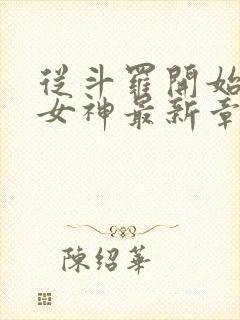 從斗羅開始
女神最新章
陳紹華